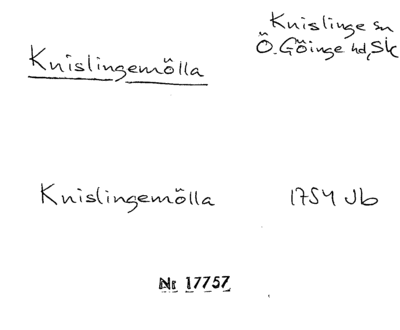 Knislinge sn
Knislingemölla
Ö. Göinge hd, Sk
Knislingemölla 1754 Jb
Nr 17757